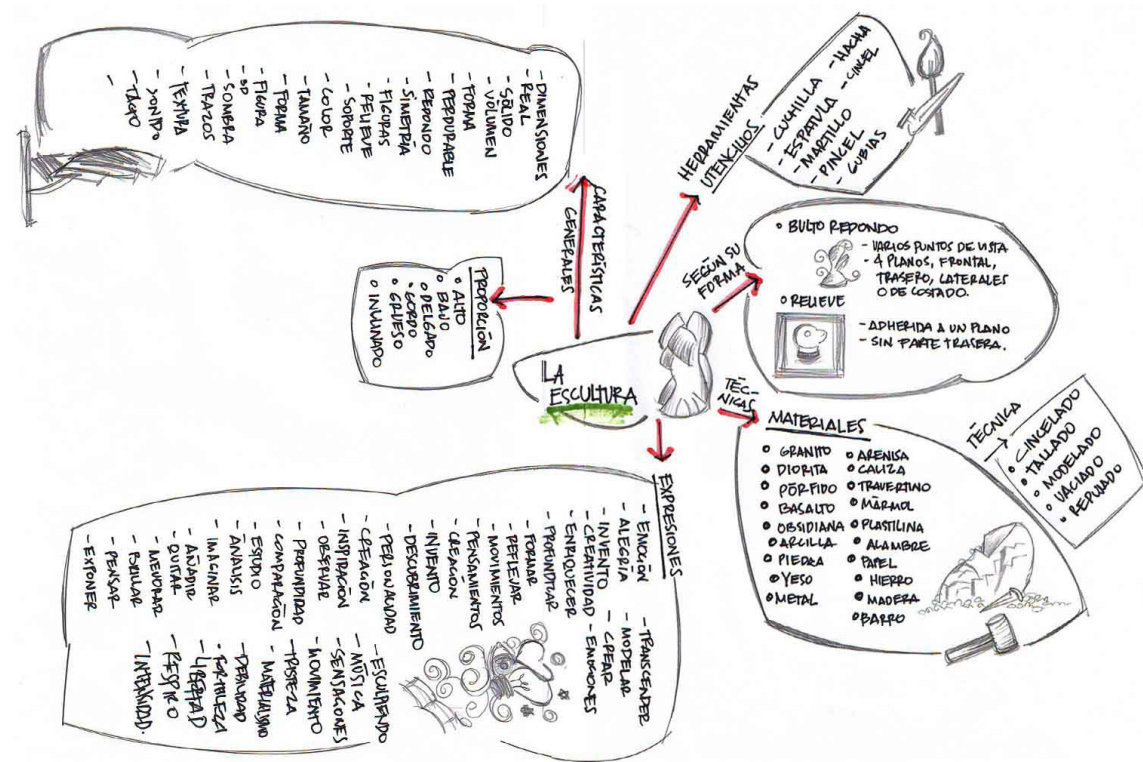 LA
ESCULTURA
CARACTERÍSTICAS
GENERALES
- DIMENSIONES
- REAL
- SÓLIDO
- VOLUMEN
- FORMA
- PERDURABLE
- REDONDO
- SIMETRÍA
- FIGURAS
- RELIEVE
- SOPORTE
- COLOR
- TAMAÑO
- FORMA
- FIGURA
- 3D
- SOMBRA
- TRAZOS
- TEXTURA
- SONIDO
- TACTO
PROPORCIÓN
ALTO
BAJO
DELGADO
GORDO
GRUESO
INCLINADO
HERRAMIENTAS
UTENCILIOS
- CUCHILLA
- ESPATULA
- MARTILLO
- PINCEL
- GUBIAS
- HACHA
- CINCEL
SEGÚN SU
FORMA
BULTO REDONDO
- VARIOS PUNTOS DE VISTA
- 4 PLANOS, FRONTAL,
TRASERO, LATERALES
O DE COSTADO.
RELIEVE
- ADHERIDA A UN PLANO
- SIN PARTE TRASERA.
TÉC-
NICAS
MATERIALES
GRANITO
DIORITA
PÓRFIDO
BASALTO
OBSIDIANA
ARCILLA
PIEDRA
YESO
METAL
ARENISA
CALIZA
TRAVERTINO
MÁRMOL
PLASTILINA
ALAMBRE
PAPEL
HIERRO
MADERA
BARRO
TÉCNICA
CINCELADO
TALLADO
MODELADO
VACIADO
REPUJADO
EXPRESIONES
- EMOCIÓN
- ALEGRÍA
- INVENTO
- CREATIVIDAD
- ENRIQUECER
- PROFUNDIZAR
- FORMAR
- REFLEJAR
- MOVIMIENTOS
- PENSAMIENTOS
- CREACIÓN
- INVENTO
- DESCUBRIMIENTO
- PERIONACIDAD
- CREACIÓN
- INSPIRACIÓN
- OBSERVAR
- PROFUNDIDAD
- COMPARACIÓN
- ESTUDIO
- ÁNALISIS
- IMAGINAR
- AÑADIR
- QUITAR
- MEJORAR
- BRILLAR
- PENSAR
- EXPONER
- TRANSCENDER
- MODELAR
- CREAR
- EMOCIONES
- ESCULPIENDO
- MÚSICA
- SENSACIONES
- MOVIMIENTO
- TRISTEZA
- MATERIALISMO
- DEBILIDAD
- FORTALEZA
- LIBERTAD
- RESPIRO
- INTENSIDAD.